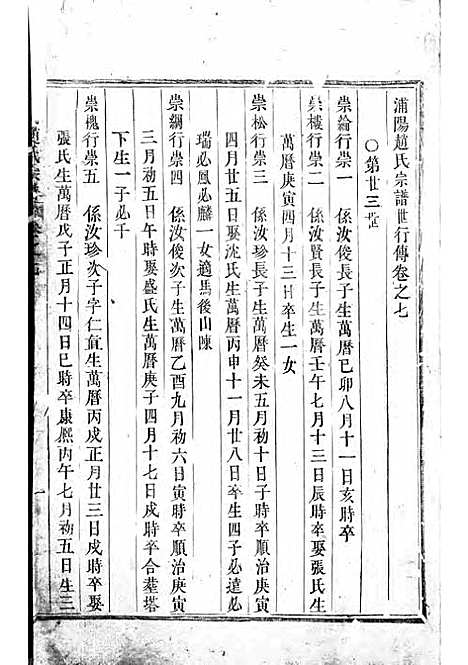 浦陽趙氏宗譜世行傳卷之七
○第廿三世
崇綸行崇一　係汝俊長子生萬曆己卯八月十一日亥時卒
崇樓行崇二　係汝賢長子生萬曆壬午七月十三日辰時卒娶張氏生
萬曆庚寅四月十三日卒生一女
崇松行崇三　係汝珍長子生萬曆癸未五月初十日子時卒順治庚寅
四月廿五日娶沈氏生萬曆丙申十一月廿八日卒生四子必遠必
瑞必鳳必麟一女適馬後山陳
崇綱行崇四　係汝俊次子生萬曆乙酉九月初六日寅時卒順治庚寅
三月初五日午時娶盛氏生萬曆庚子四月十七日戌時卒合葬塔
下生一子必千
崇槐行崇五　係汝珍次子字仁宜生萬曆丙戌正月廿三日戌時卒娶
張氏生萬曆戊子正月十四日巳時卒康熙丙午七月初五日生三
一